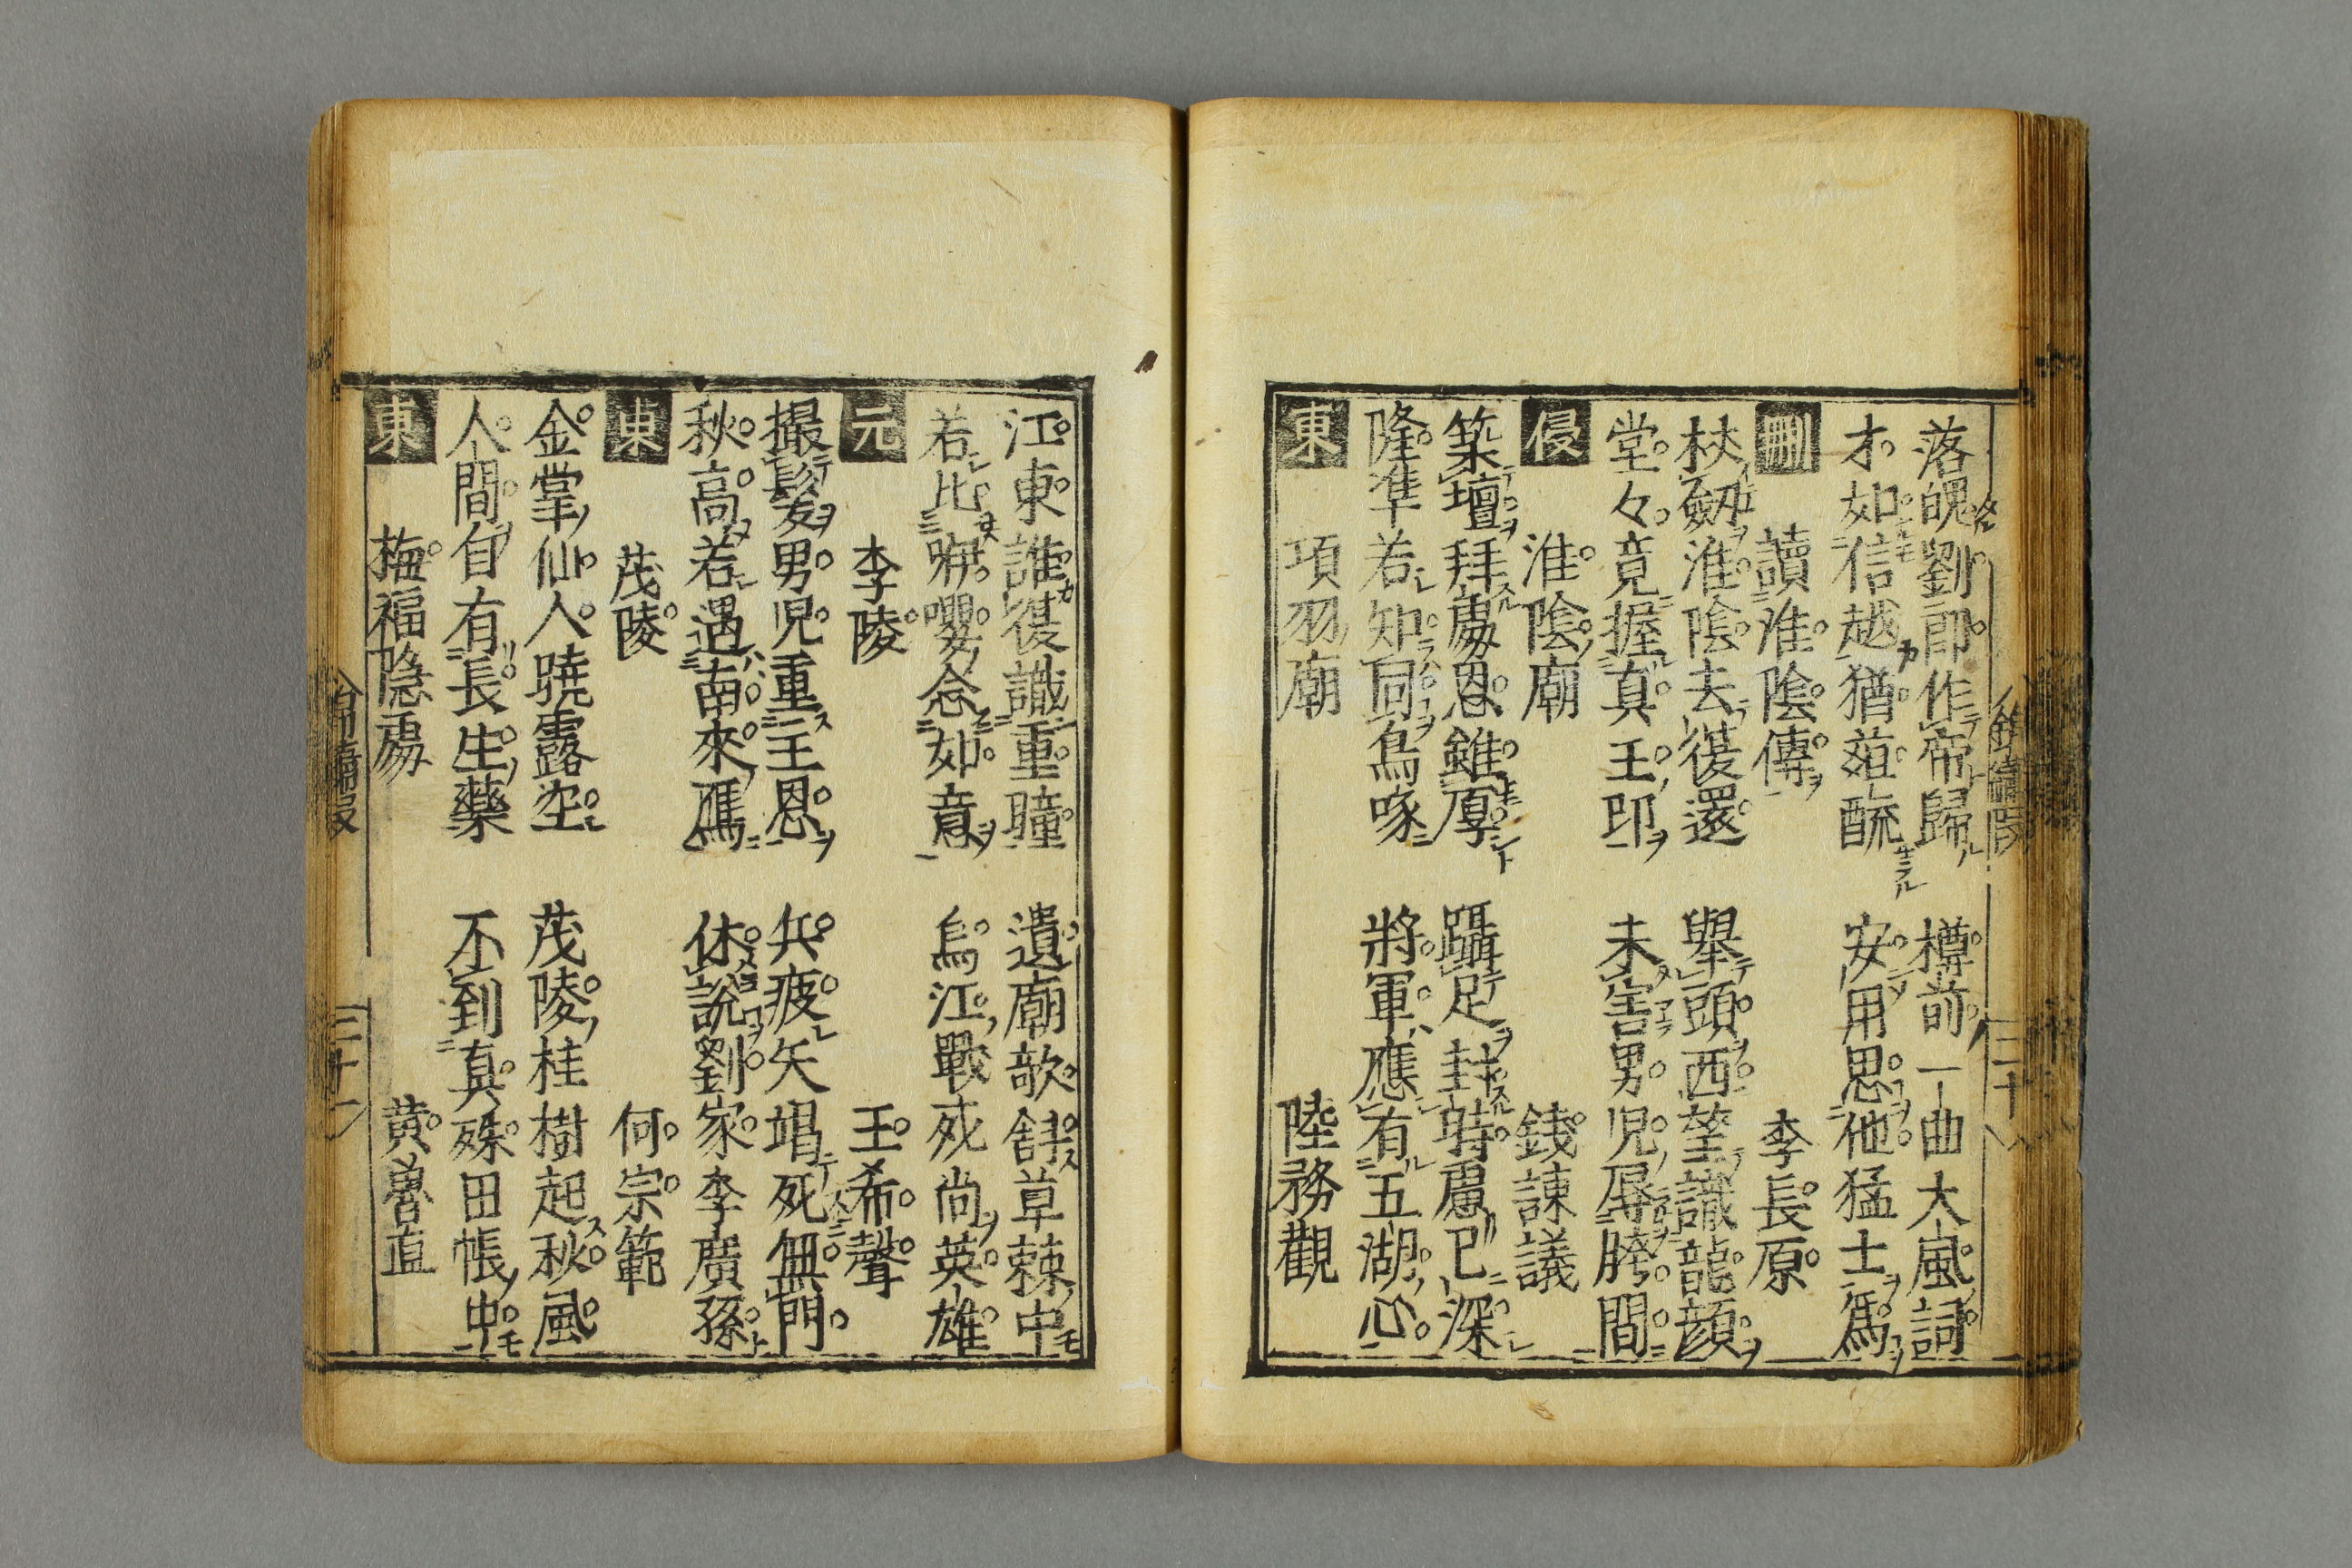 落魄劉郎作帝歸 樽前一曲大風詞
才如信越猶葅醢 安用思他猛士爲
刪 讀淮陰傳 李長原
杖劔淮陰去復還 舉頭西望識龍顔
堂々竟握真王印 未害男児辱胯間
侵 淮陰廟 錢諫議
築壇拜處恩雖厚 躡足封時慮已深
隆準若知同鳥喙 將軍應有五湖心
東 項羽廟 陸務觀
江東誰復識重瞳 遺廟欹斜草棘中
若比咿嚶念如意 烏江戰死尚英雄
元 李陵 王希聲
撮髪男児重主恩 兵疲矢竭死無門
秋高若遇南來鴈 休說劉家李廣孫
東 茂陵 何宗範
金掌仙人曉露空 茂陵桂樹起秋風
人間自有長生藥 不到真殊田帳中
東 梅福隠處 黄魯直